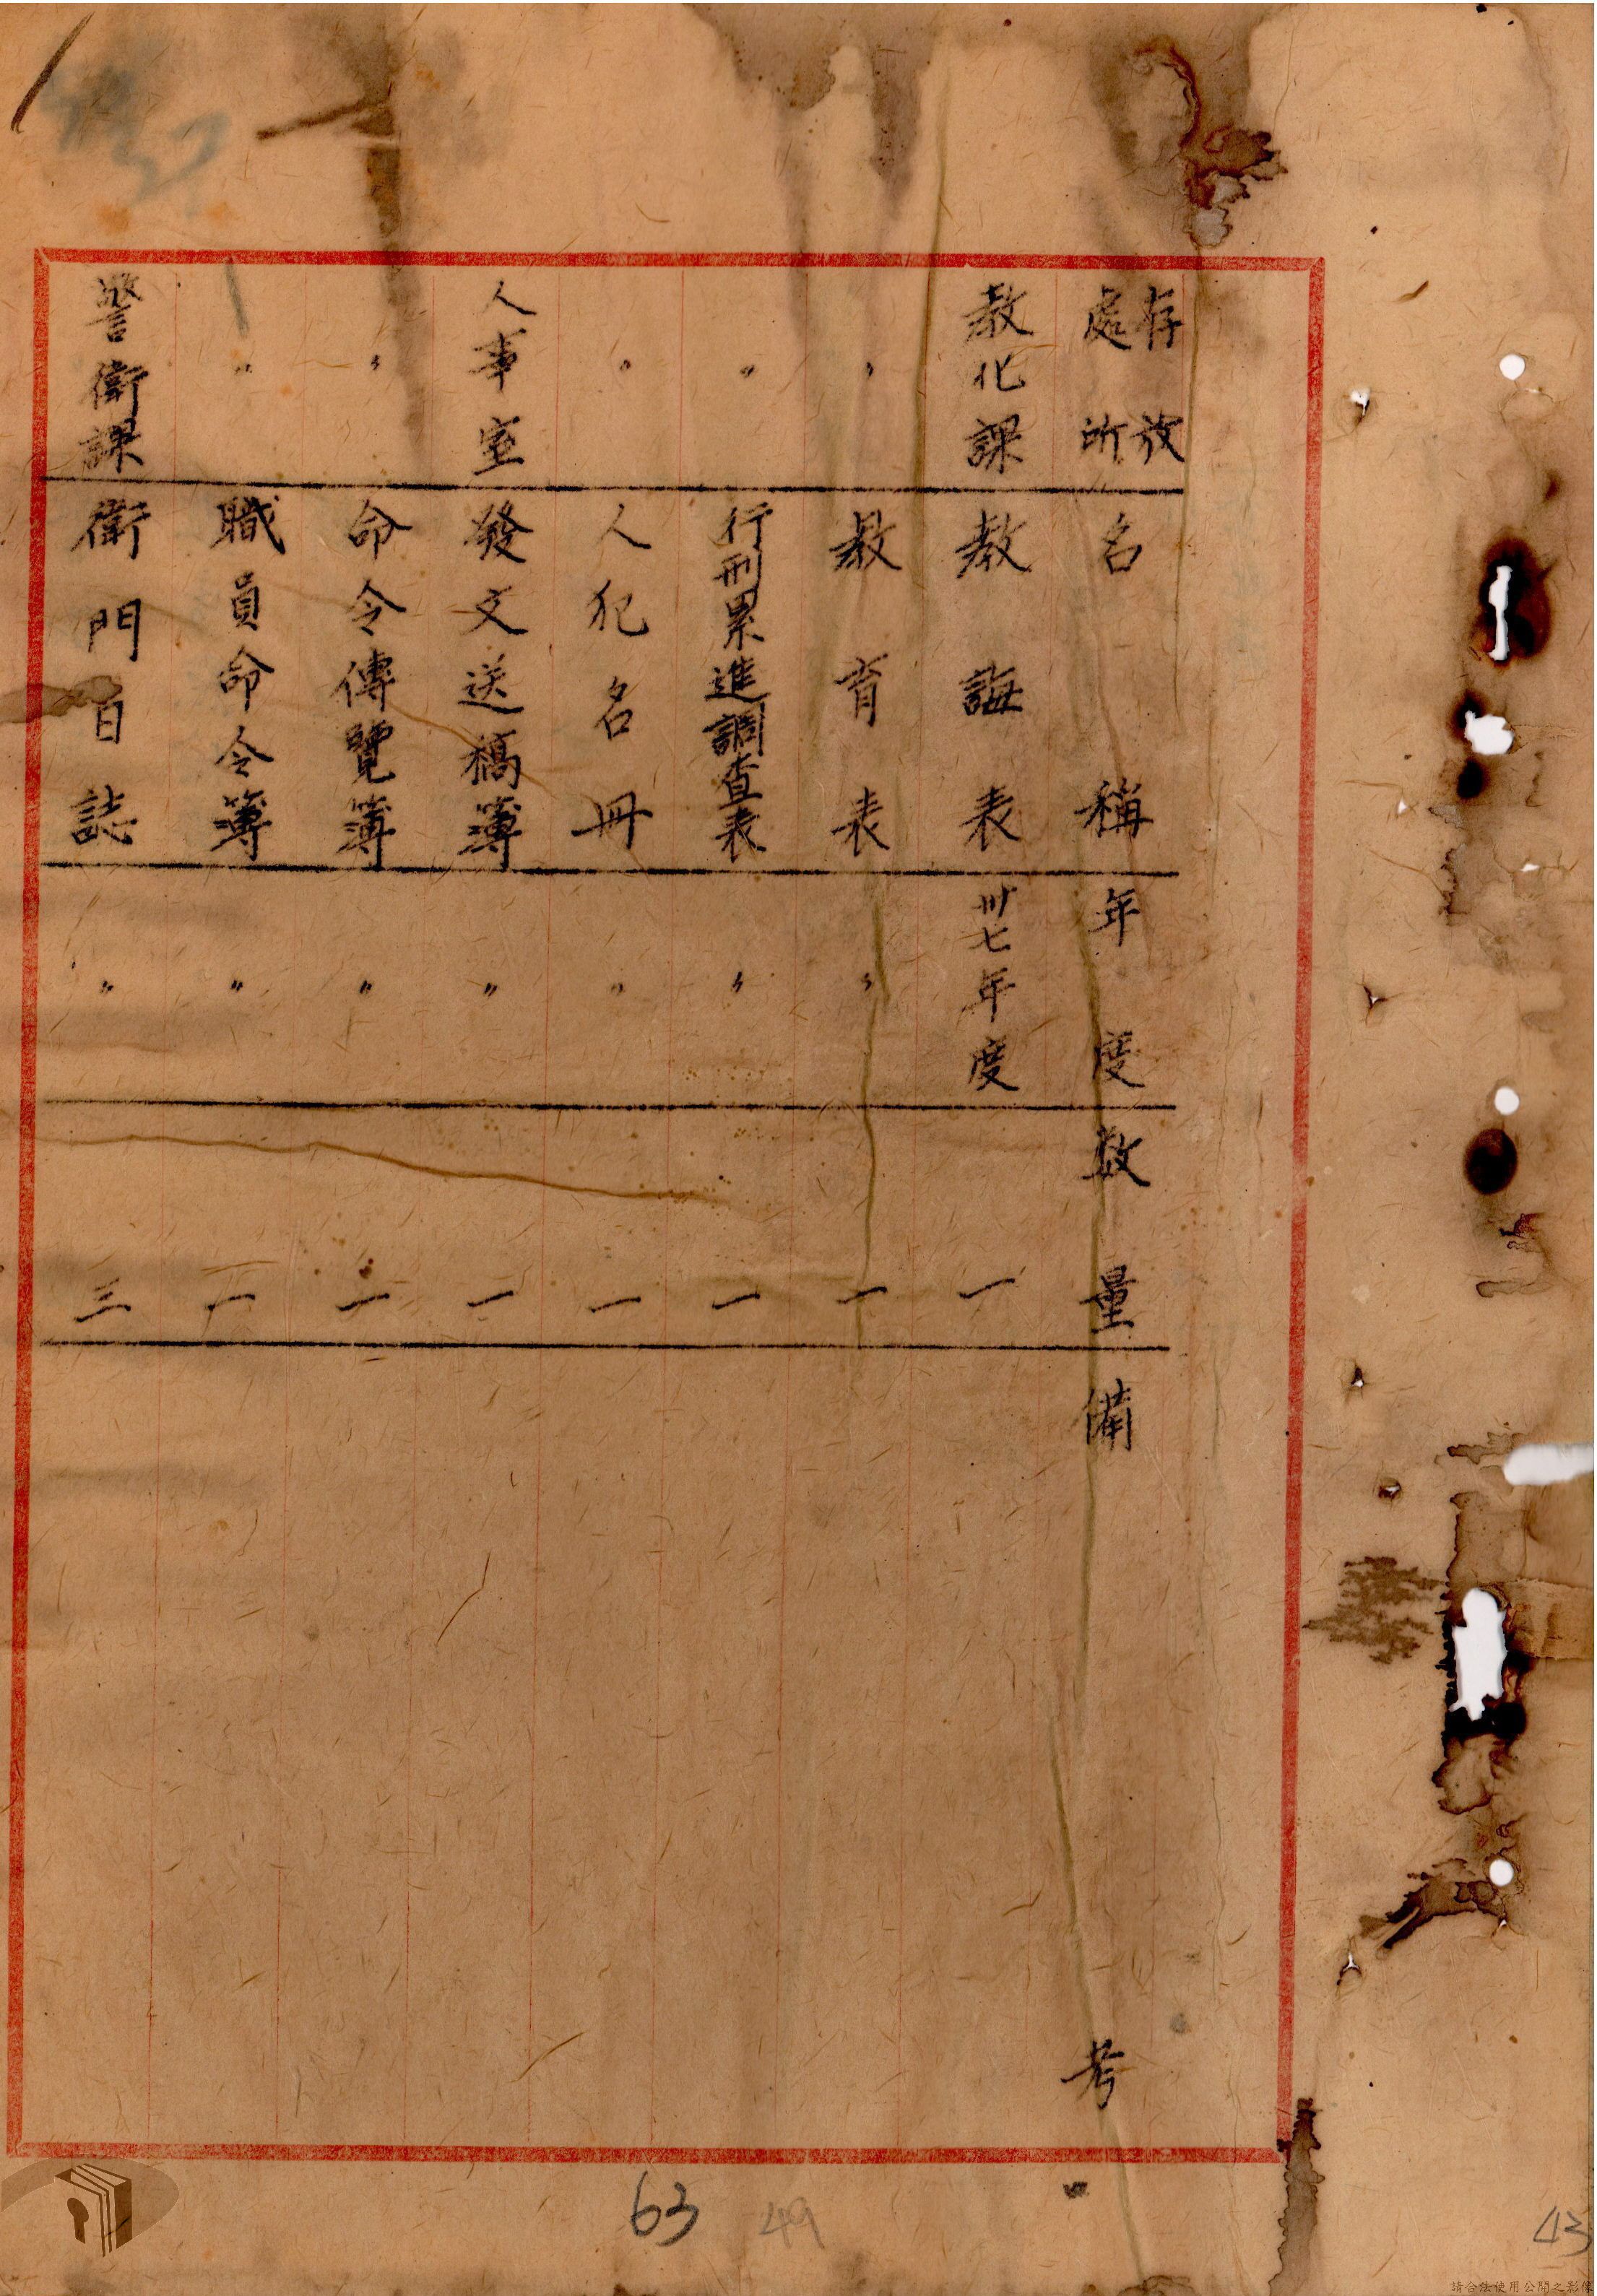 存放處所 名稱 年度 數量 備考
教化課 教誨表 卅七年度 一
〃 教育表 〃 一
〃 行刑累進調查表 〃 一
〃 人犯名冊 〃 一
人事室 發文送稿簿 〃 一
〃 命令傳覽簿 〃 一
〃 職員命令簿 〃 一
警衛課 衛門日誌 〃 三
63
49
43
請合法使用公開之影像